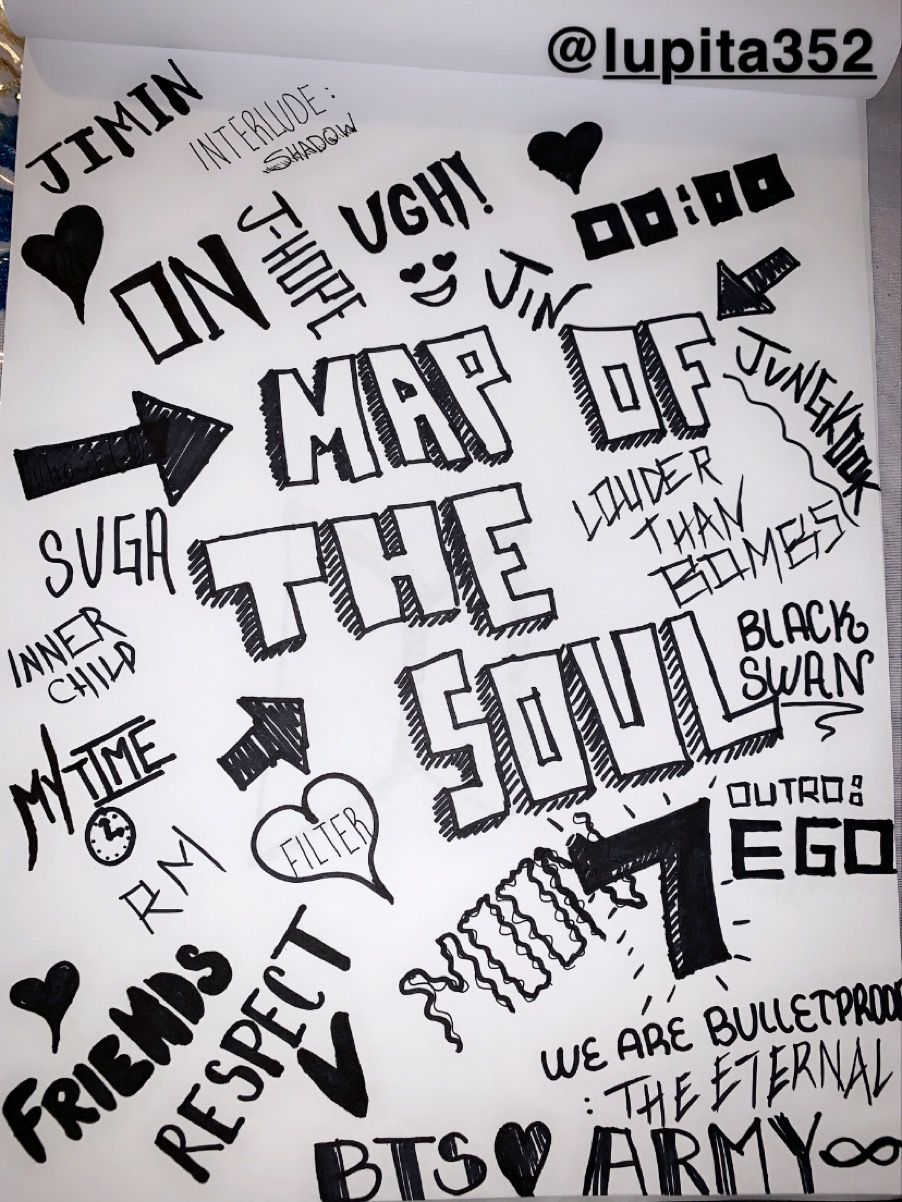 @lupita352
JIMIN
INTERLUDE:
SHADOW
UGH!
00:00
J-HOPE
ON
JIN
MAP OF
JUNGKOOK
LOUDER
THAN
BOMBS
SUGA
THE
INNER
CHILD
BLACK
SWAN
SOUL
MY TIME
FILTER
OUTRO:
EGO
7
RM
FRIENDS
RESPECT
WE ARE BULLETPROOF
: THE ETERNAL
BTS ARMY